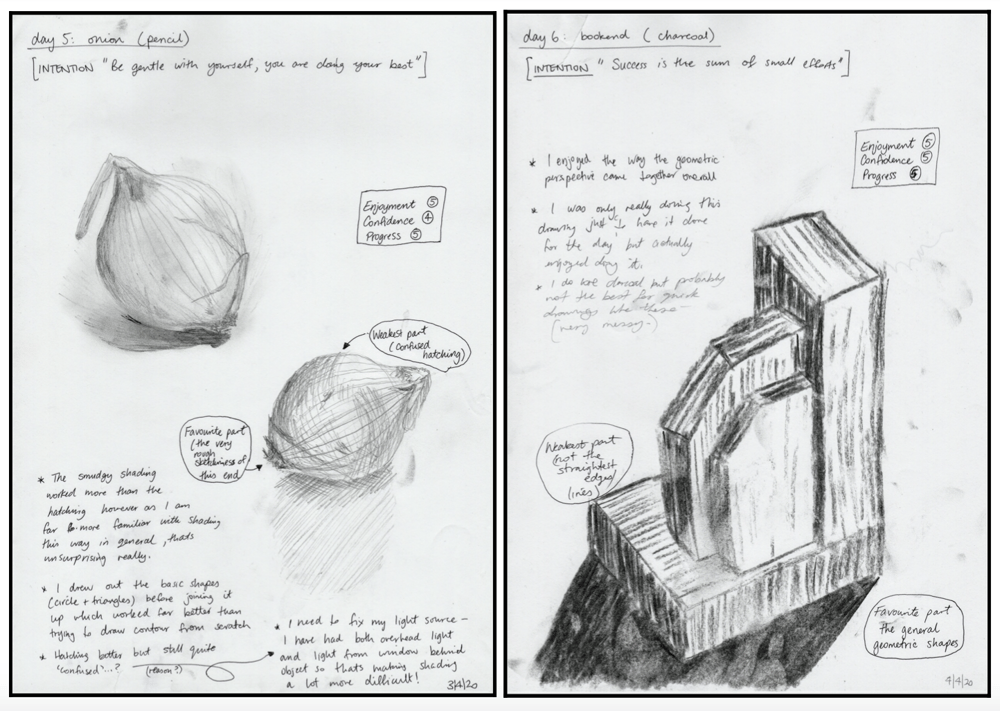 day 5: onion (pencil)
[INTENTION "Be gentle with yourself, you are doing your best"]
Enjoyment 5
Confidence 4
Progress 5
Weakest part
(confused
hatching)
Favourite part
(the very
rough
sketchiness of
this end)
* The smudgy shading
worked more than the
hatching however as I am
far more familiar with shading
this way in general, thats
unsurprising really.
* I drew out the basic shapes
(circle + triangles) before joining it
up which worked far better than
trying to draw contour from scratch
* Hatching better but still quite
'confused'...? (reason?)
* I need to fix my light source –
I have had both overhead light
and light from window behind
object so thats making shading
a lot more difficult!
3/4/20
day 6: bookend (charcoal)
[INTENTION "Success is the sum of small efforts"]
Enjoyment 5
Confidence 5
Progress 5
* I enjoyed the way the geometric
perspective came together overall
* I was only really doing this
drawing just to have it done
for the day, but actually
enjoyed doing it.
* I do love charcoal but probably
not the best for quick
drawings like these
(very messy-)
Weakest part
(not the
straightest
edges/
lines)
Favourite part
the general
geometric shapes
4/4/20